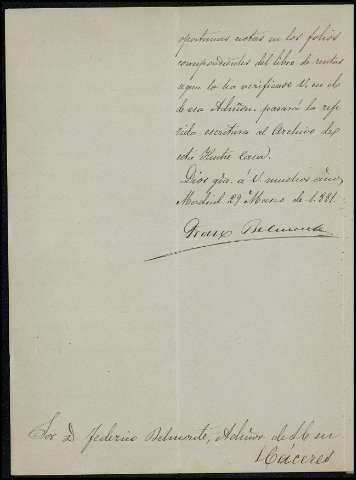 oportunas notas en los folios
correspondientes del libro de rentas
segun lo ha verificado V. en el
de esa Admón. pasará la refe
rida escritura al Archivo de
esta Ilustre Casa.
Dios gûe. á V. muchos años
Madrid 29 Marzo de 1.881.
Belmonte
Sor. D. Federico Belmonte, Admór. de S.E. en
Cáceres